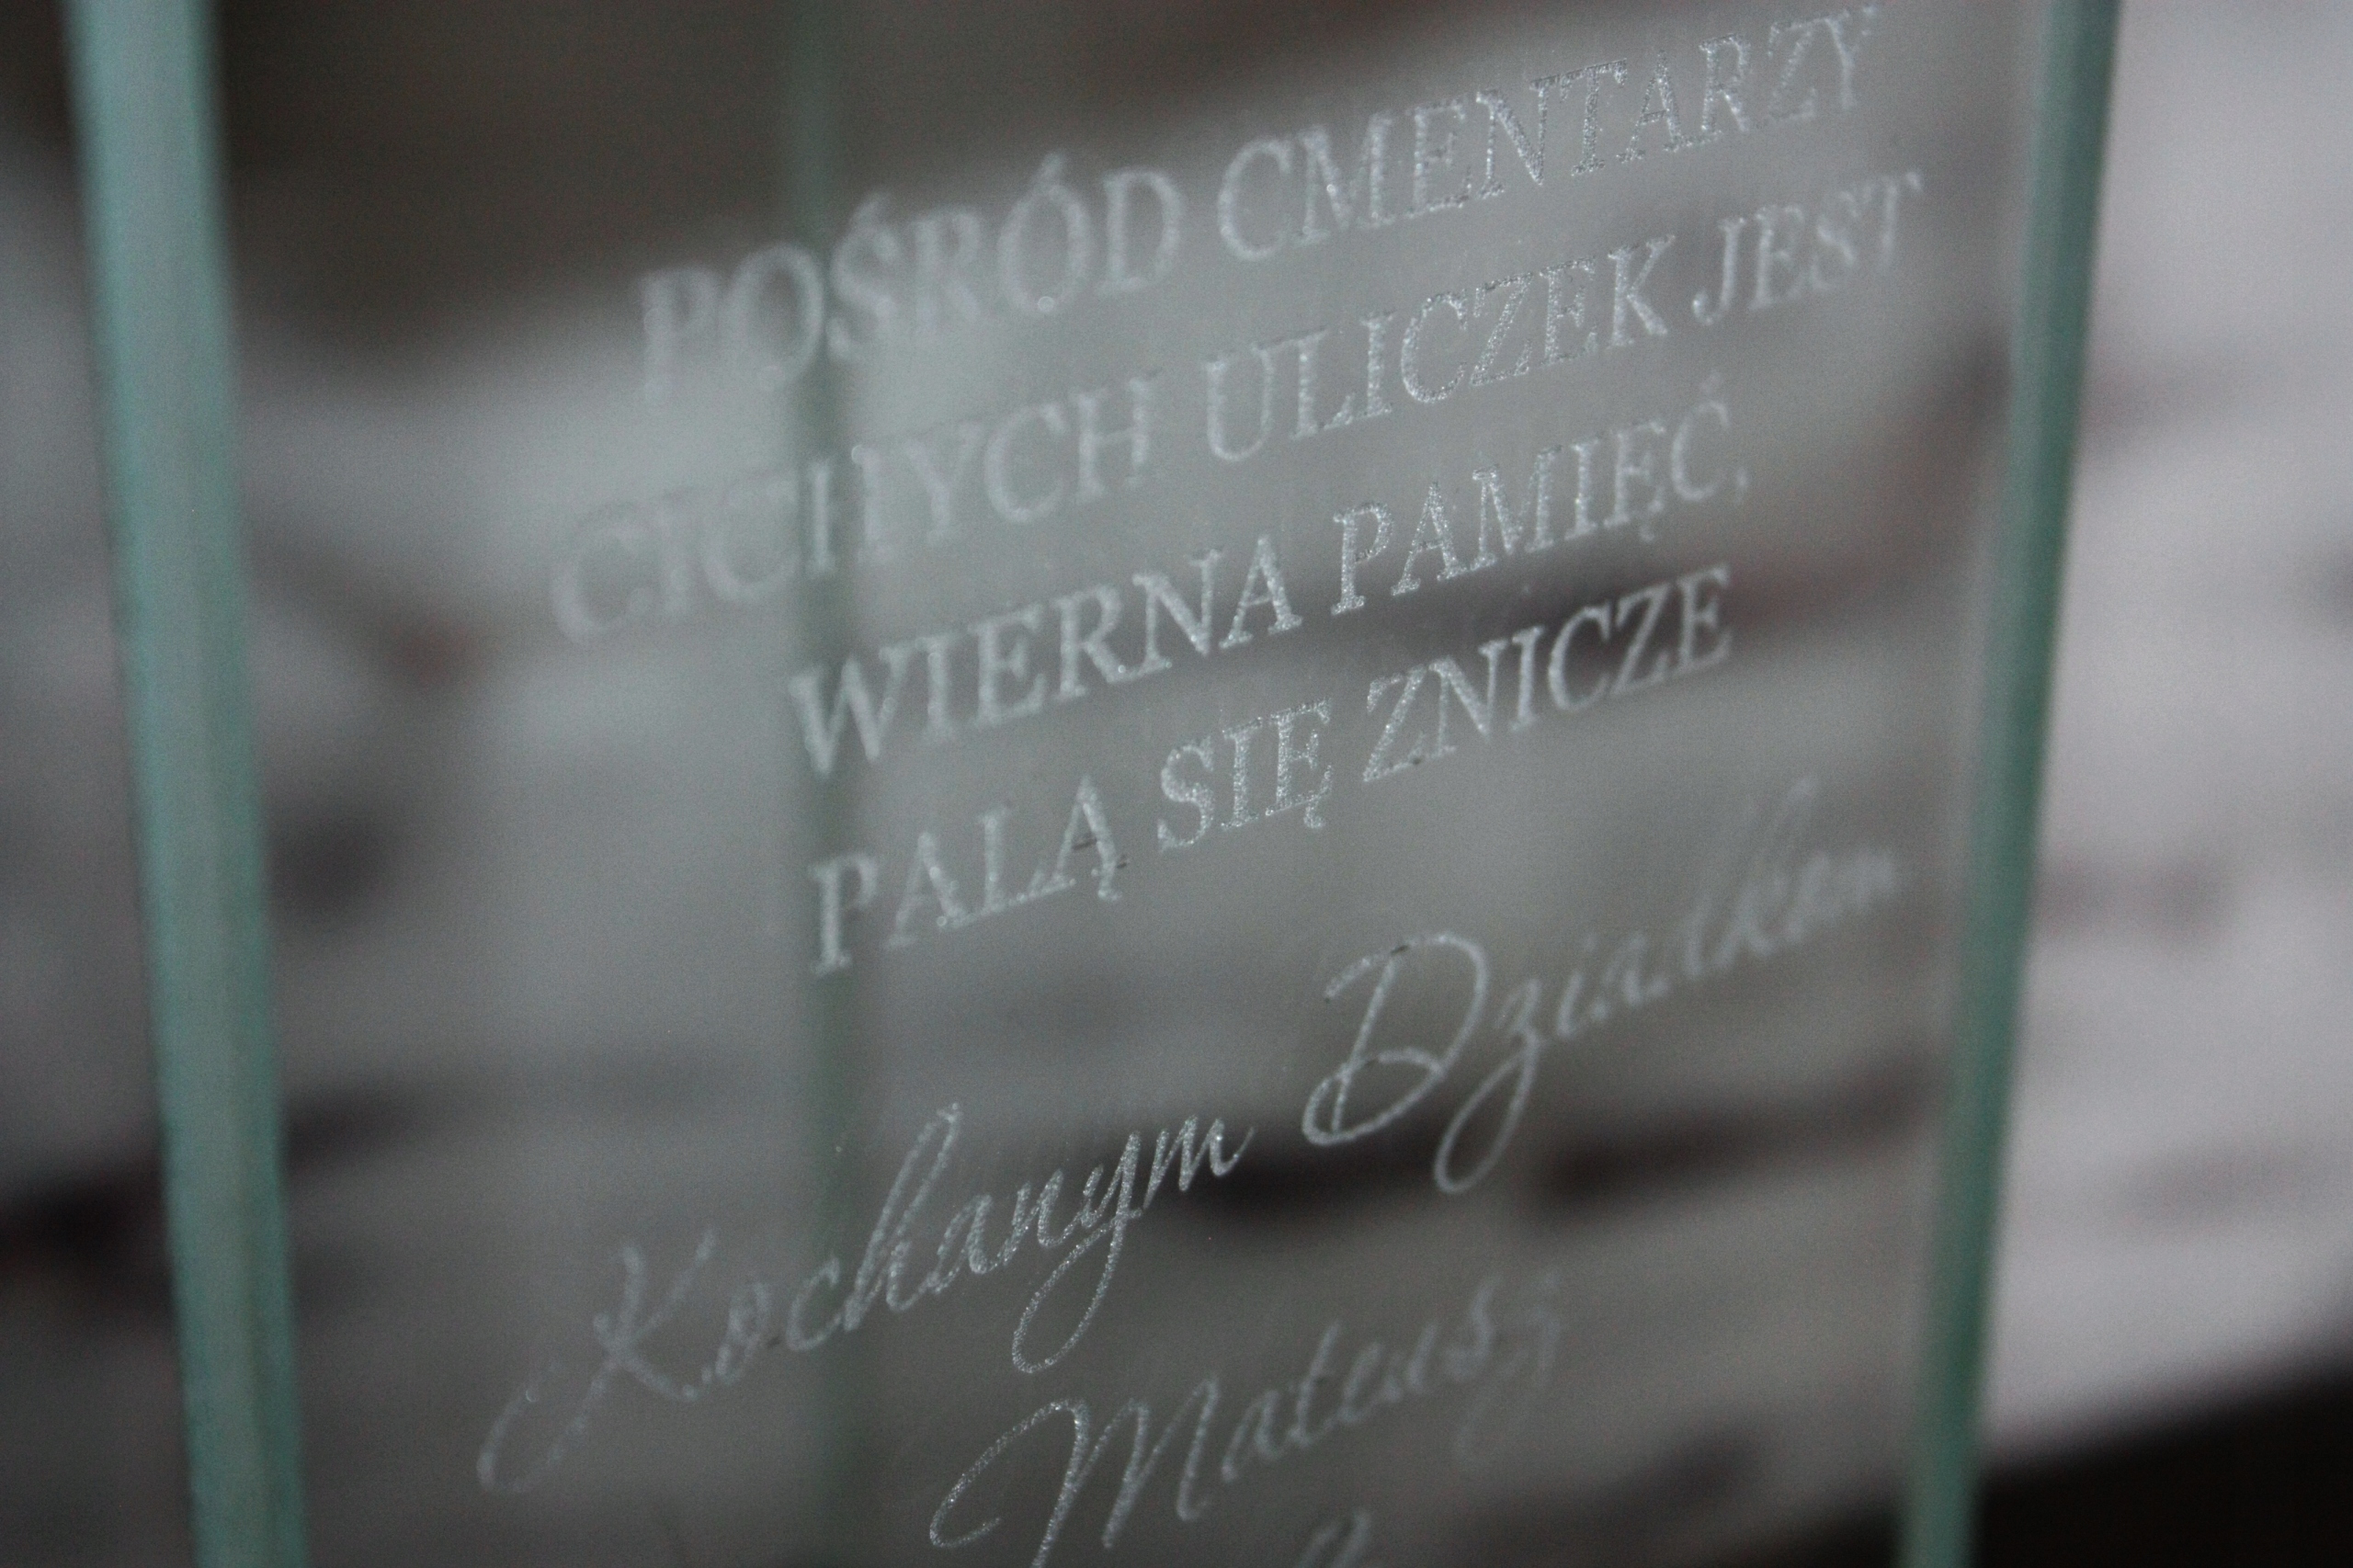 POŚRÓD CMENTARZY
CICHYCH ULICZEK JEST
WIERNA PAMIĘĆ,
PALĄ SIĘ ZNICZE
Kochanym Dziadkom
Mateusz